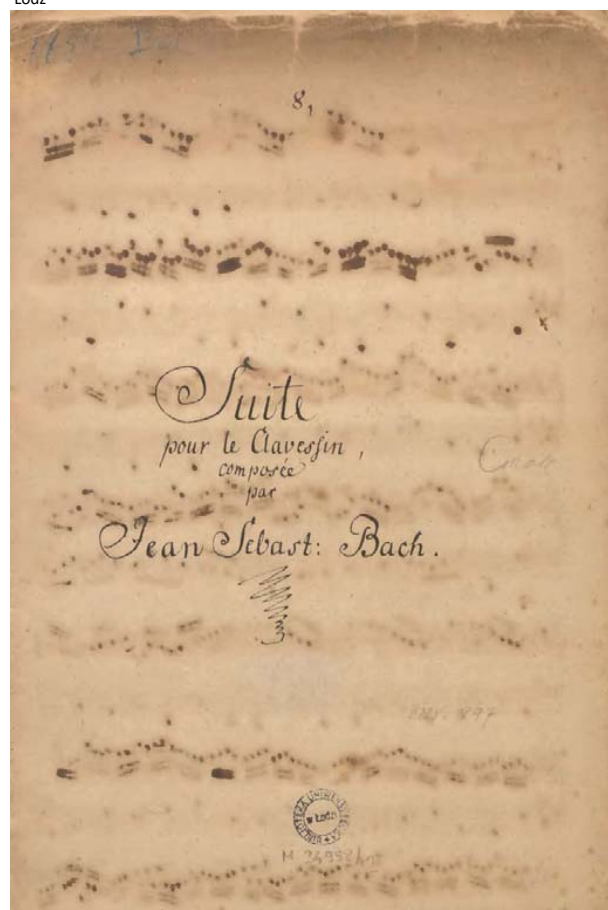 Łódź
8,
Suite
pour le Clavessin,
composée
par
Jean Sebast: Bach.
BIBLIOTEKA UNIWERSYTECKA
W ŁODZI